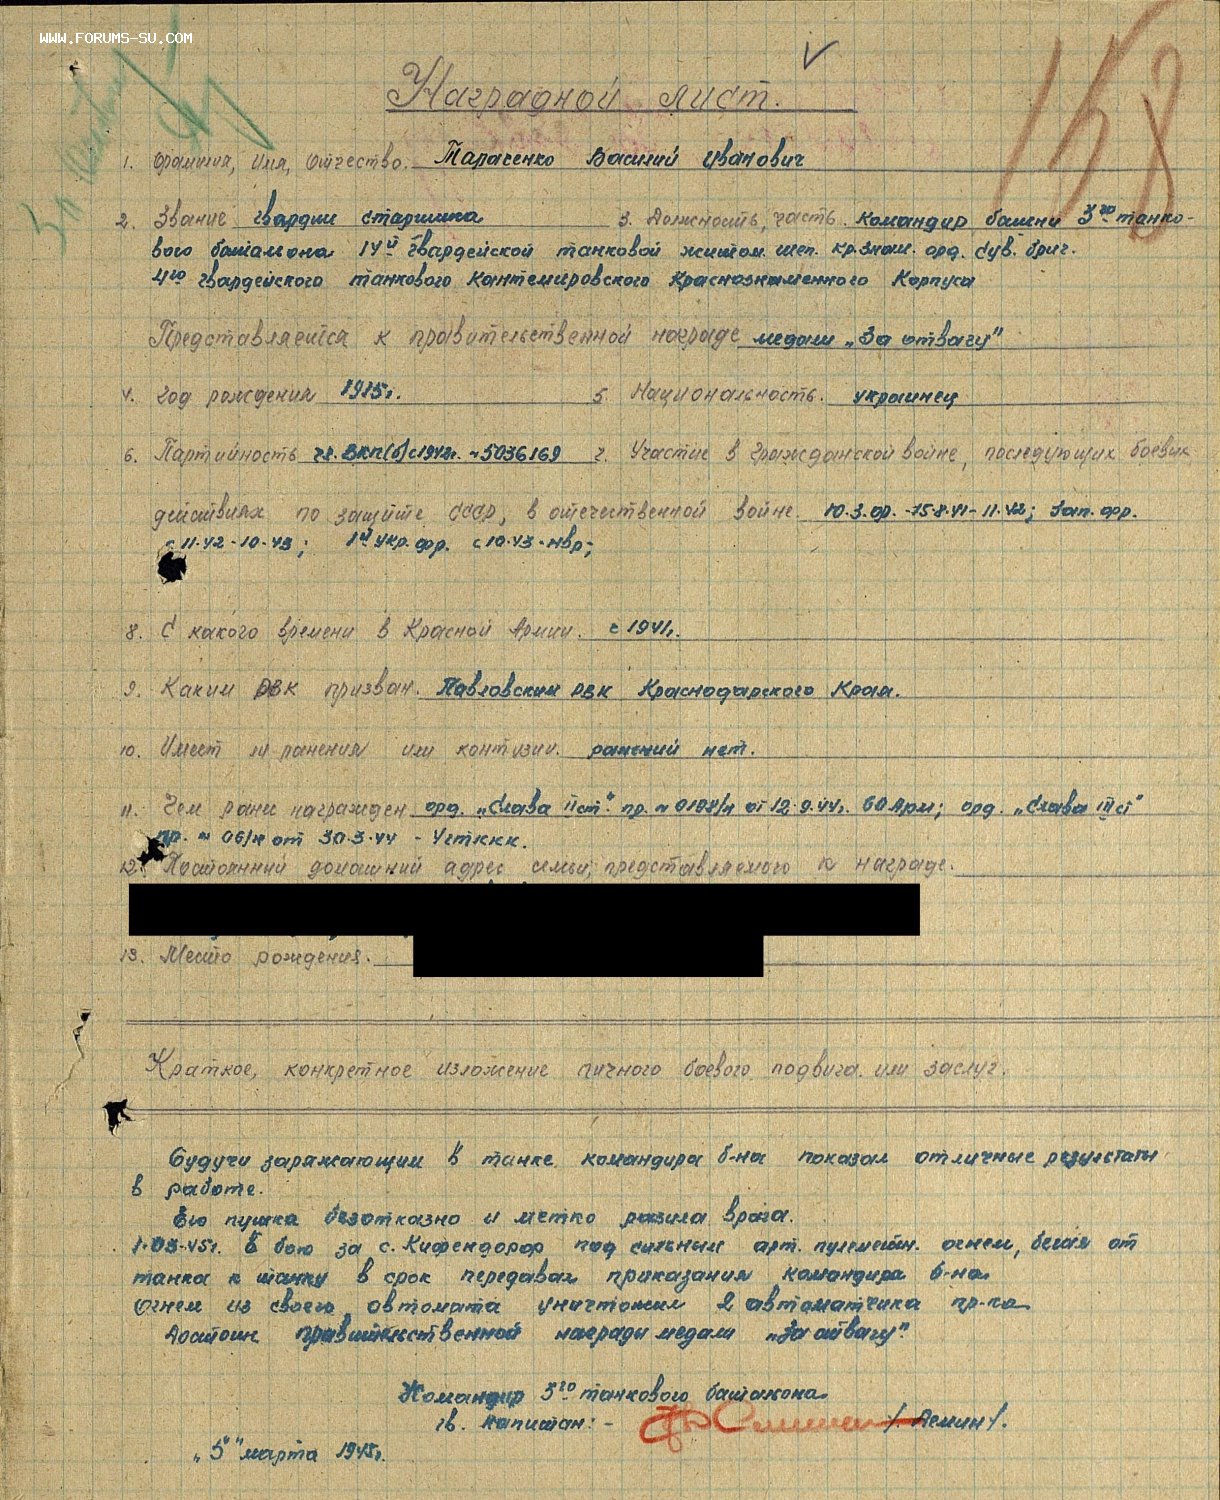 WWW.FORUMS-SU.COM
158
Наградной лист.
1. Фамилия, Имя, Отчество. Тарасенко Василий Иванович
2. Звание гвардии старшина 3. Должность, часть. командир башни 3го танко-
вого баталиона 14й гвардейской танковой житом. шеп. кр.знам. орд. Сув. бриг.
4го гвардейского танкового Кантемировского Краснознаменного Корпуса
Представляется к правительственной награде медали „За отвагу"
4. Год рождения 1915г. 5. Национальность. украинец
6. Партийность чл. ВКП(б) с 1942г. №5036169 7. Участие в гражданской войне, последующих боевых
действиях по защите СССР, в отечественной войне. Ю.З.фр. -15.8.41-11.42; Зап. фр.
с 11.42-10.43; 1й Укр. фр. с 10.43-
8. С какого времени в Красной Армии. с 1941г.
9. Каким РВК призван. Павловским РВК Краснодарского Края.
10. Имеет ли ранения или контузии. ранений нет.
11. Чем ранее награжден орд. „Слава II ст". пр. № 0198/н от 12.9.44г. 60 Арм; орд. „Слава III ст"
пр. № 06/н от 30.3.44 -
12. Постоянный домашний адрес семьи, представляемого к награде.
13. Место рождения.
Краткое, конкретное изложение личного боевого подвига или заслуг.
Будучи заряжающим в танке командира б-на показал отличные результаты
в работе.
Его пушка безотказно и метко разила врага.
1.03.45г. В бою за с. Кифендорф, под сильным арт. пулеметн. огнем, бегая от
танка к танку в срок передавал приказания командира б-на
Огнем из своего автомата уничтожил 2 автоматчика пр-ка
Достоин правительственной награды медали „За отвагу".
Командир 3го танкового баталиона
гв. капитан: - /Демин/.
„5" марта 1945г.